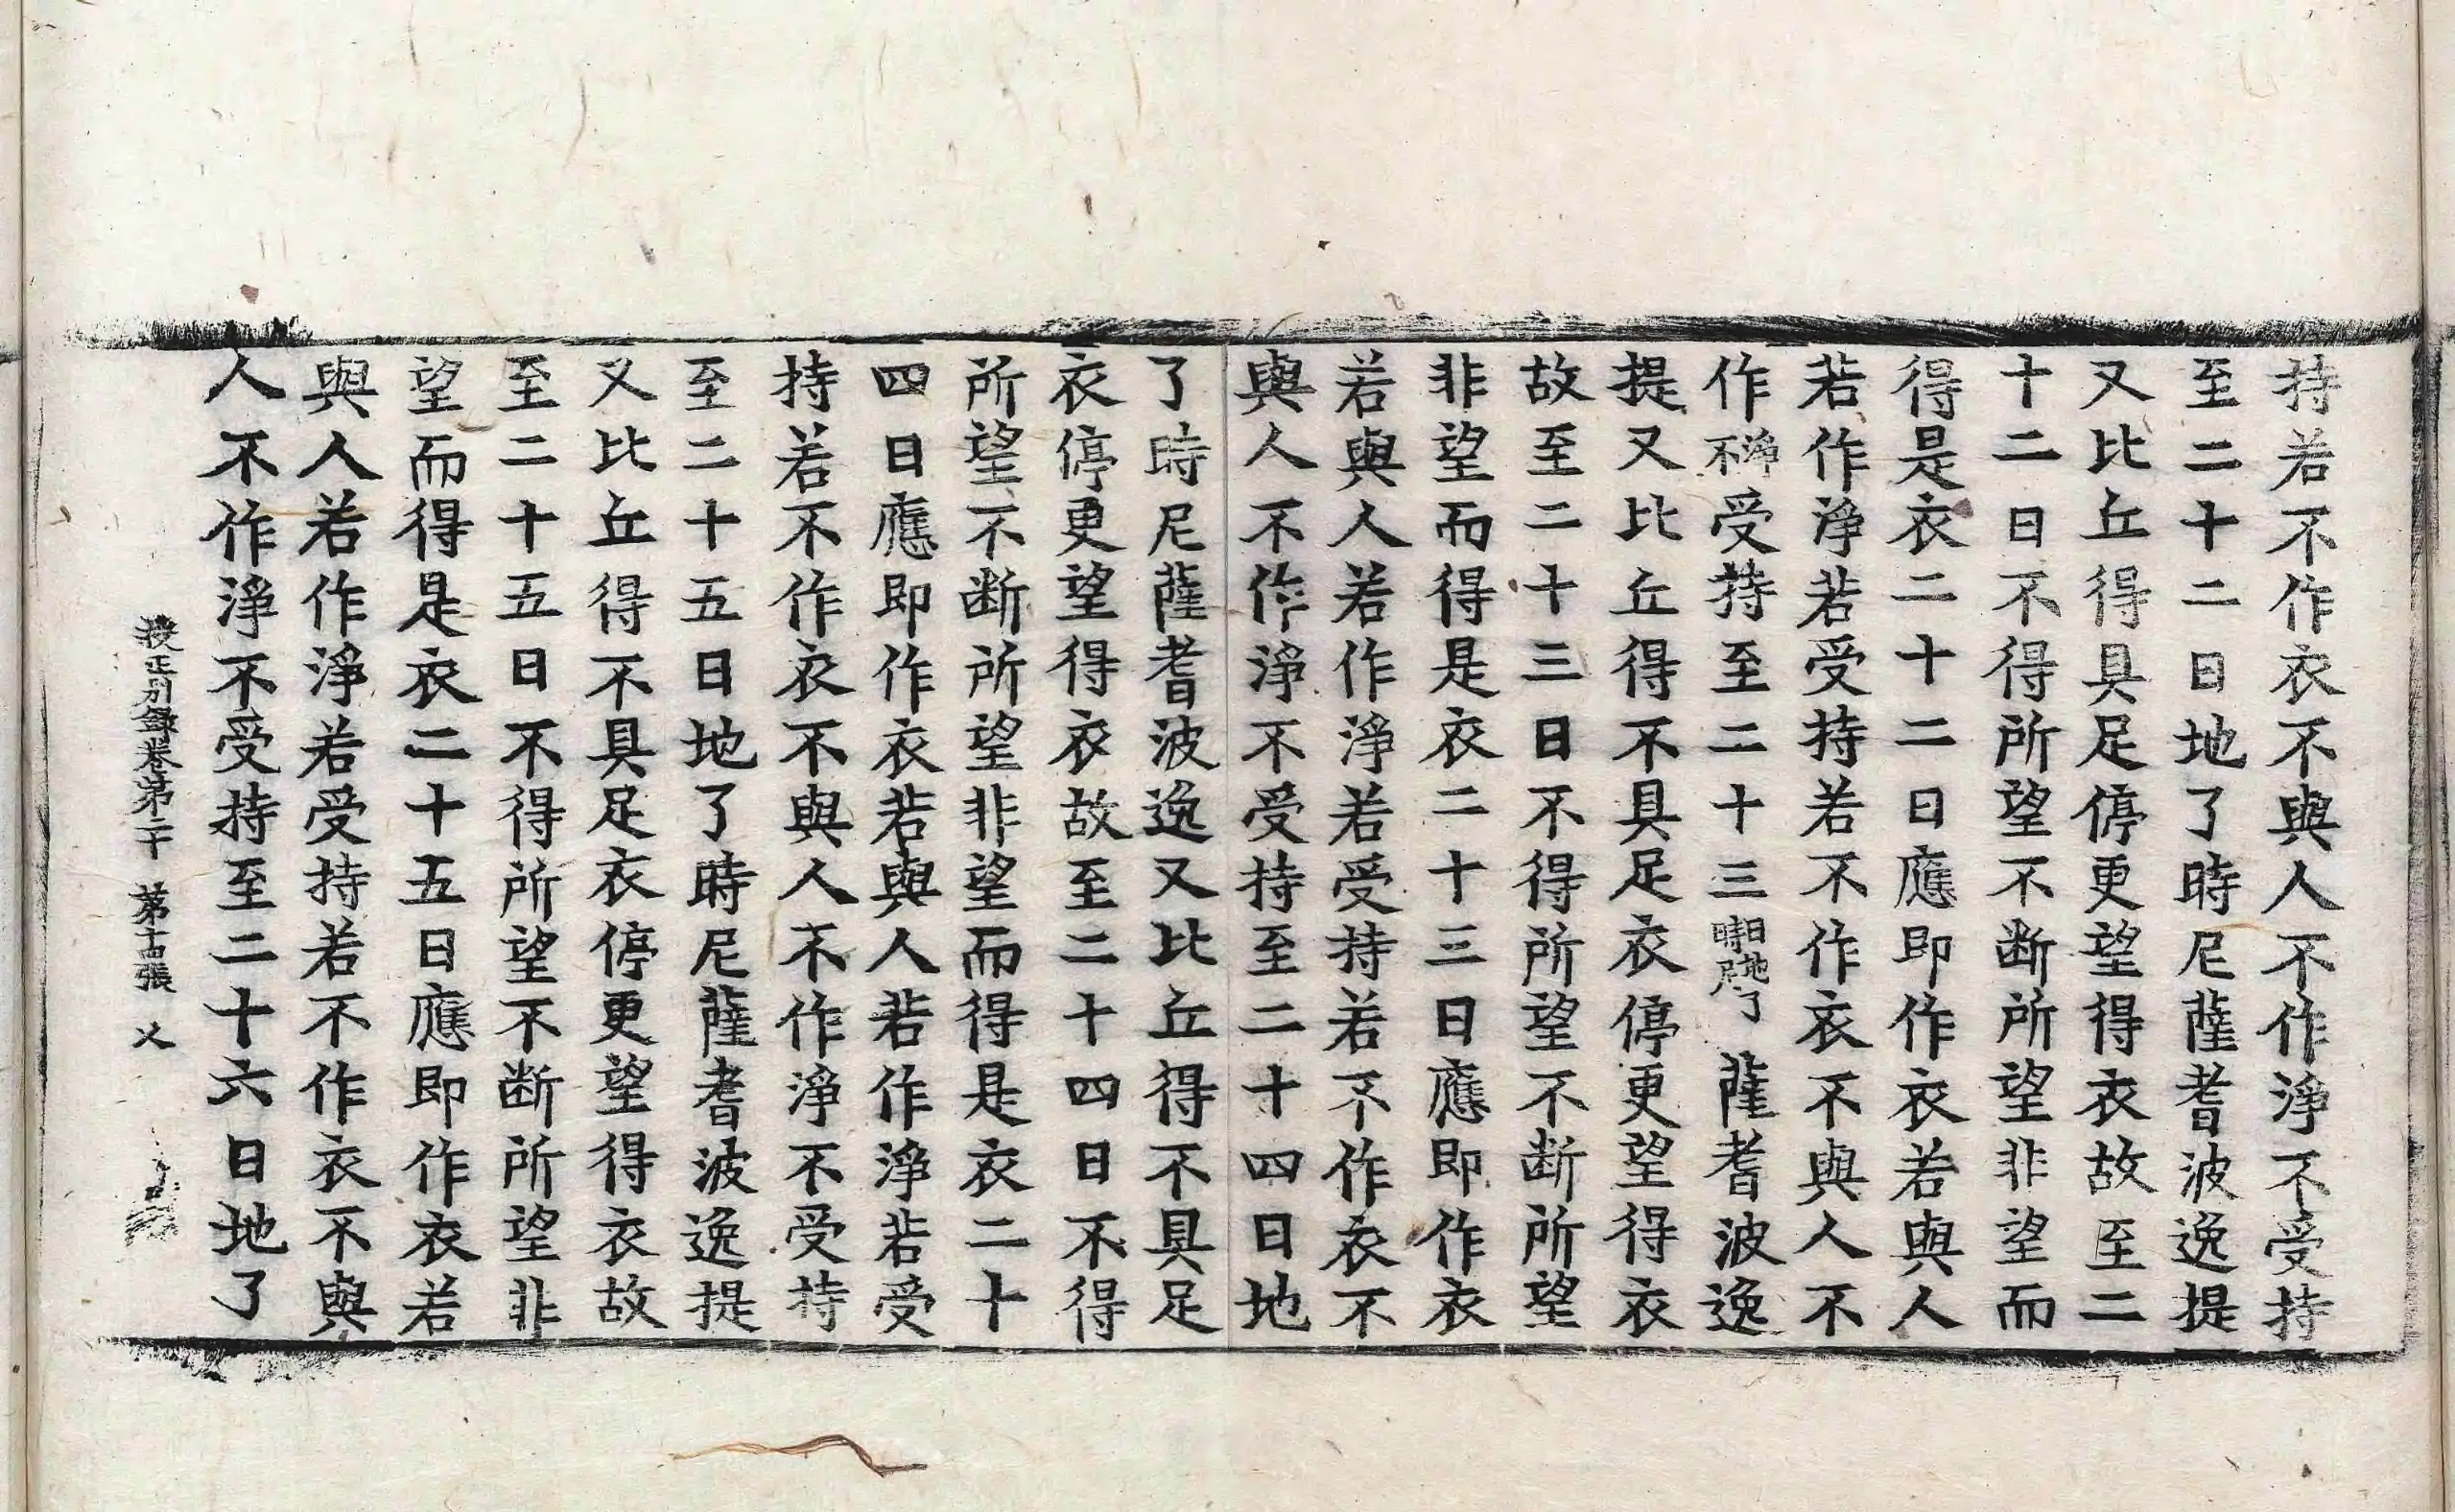 持若不作衣不與人不作淨不受持
至二十二日地了時尼薩耆波逸提
又比丘得具足停更望得衣故至二
十二日不得所望不断所望非望而
得是衣二十二日應即作衣若與人
若作淨若受持若不作衣不與人不
作淨不受持至二十三日地了時尼薩耆波逸
提又比丘得不具足衣停更望得衣
故至二十三日不得所望不断所望
非望而得是衣二十三日應即作衣
若與人若作淨若受持若不作衣不
與人不作淨不受持至二十四日地
了時尼薩耆波逸又比丘得不具足
衣停更望得衣故至二十四日不得
所望不断所望非望而得是衣二十
四日應即作衣若與人若作淨若受
持若不作衣不與人不作淨不受持
至二十五日地了時尼薩耆波逸提
又比丘得不具足衣停更望得衣故
至二十五日不得所望不断所望非
望而得是衣二十五日應即作衣若
與人若作淨若受持若不作衣不與
人不作淨不受持至二十六日地了
校正别録卷第二十 第十古張 乂